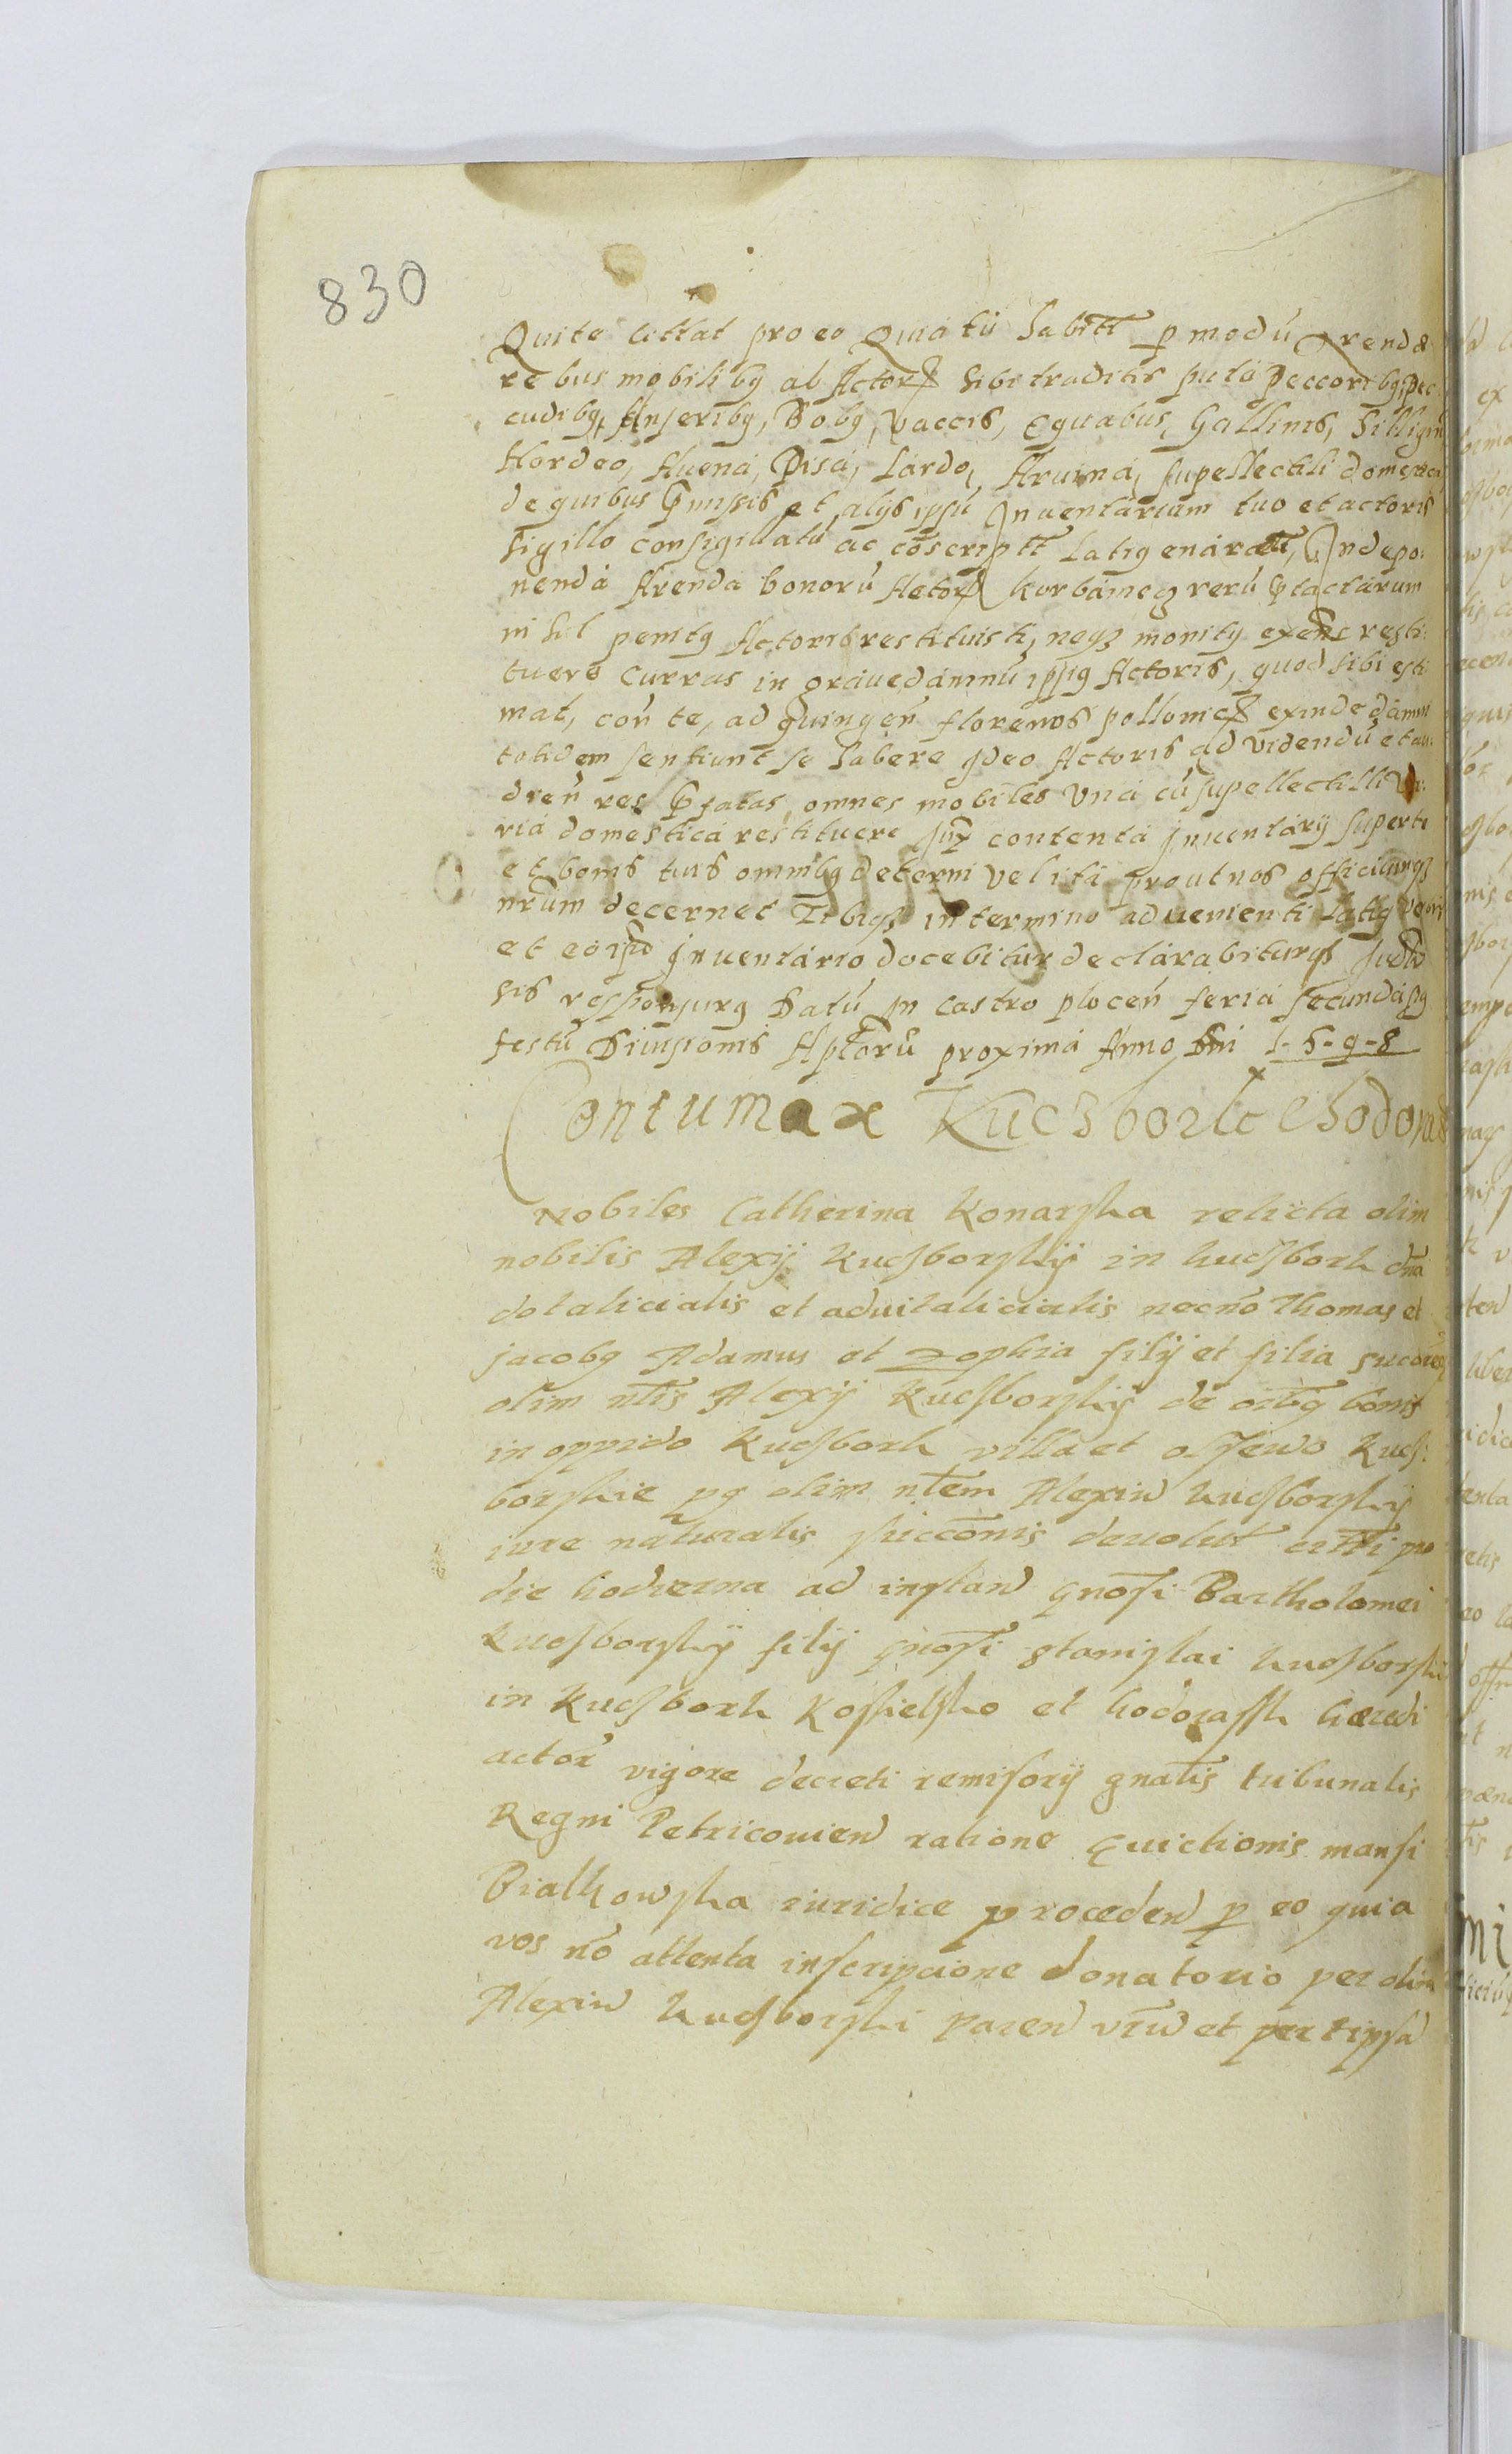 830
Quite cittat pro eo Quia tu habitis p modu Arendæ
rebus mobilibq ab Actore sibi traditis puta peccoribq, pec
cudibq, Anseribq, Bobq, vaccis, Equabus, Gallinis, Silligin
Hordeo, Auena, Pisa, Lardo, Aruina, supellectili domestica
de quibus pmissis et alijs ipsu Inuentarium tuo et actoris
sigillo consigillatu ac conscriptu latiq enarratu, In depo
nenda Arenda bonoru Actor Korbameq reru ptactarum
nihil penitq Actori restituisti, neqz monitq exens resti
tuere curras in graue damnu ipsiq Actoris, quod sibi esti
mat, con te, ad quingen florenos pollonic exinde damni
totidem sentiunt se habere Ideo Actoris ad videndu et au
dien res pfatas, omnes mobiles Vna cu supellectilli va
ria domestica restituere Jux contenta Inuentarij super te
et bonis tuis omnibq decerni vel iti prout nos officiumqz
nrum decernet Tibiqz in termino aduenienti latiq
et eo ipso Inuentario docebitur declarabiturqz Judi
sis responsurq Datu in Castro plocen feria secunda
festu Diuisionis Aplorū proxima Anno Dni 1-5-9-8
Contumax Kuczbork Chodoras
Nobiles Catherina Konarska relicta olim
nobilis Alexij Kuczborskij in Kuczbork dna
dotalicialis et aduitalicialis necno Thomas et
Jacobq Adamus et Zophia filij et filia succores
olim nlis Alexij Kuczborskij de oibq bonis
in oppido Kuczbork villa et Osiewo Kucz
borskie pq olim nlem Alexiu Kuczborskij
iure naturalis succonis deuolut citti pro
die hodierna ad instan gnosi Bartholomei
Kuczborskij filij gnosi Stanislai Kuczborski
in Kuczbork Koskielsko et hodorassk hæredi
actor vigore decreti remisorij gnalis tribunalis
Regni Petricouien ratione Euictionis mansi
Bialkowska iuridice proceden p eo quia
vos no attenta inscripcione donatorio per olim
Alexiu Kuczborski paren vru et per ipsa